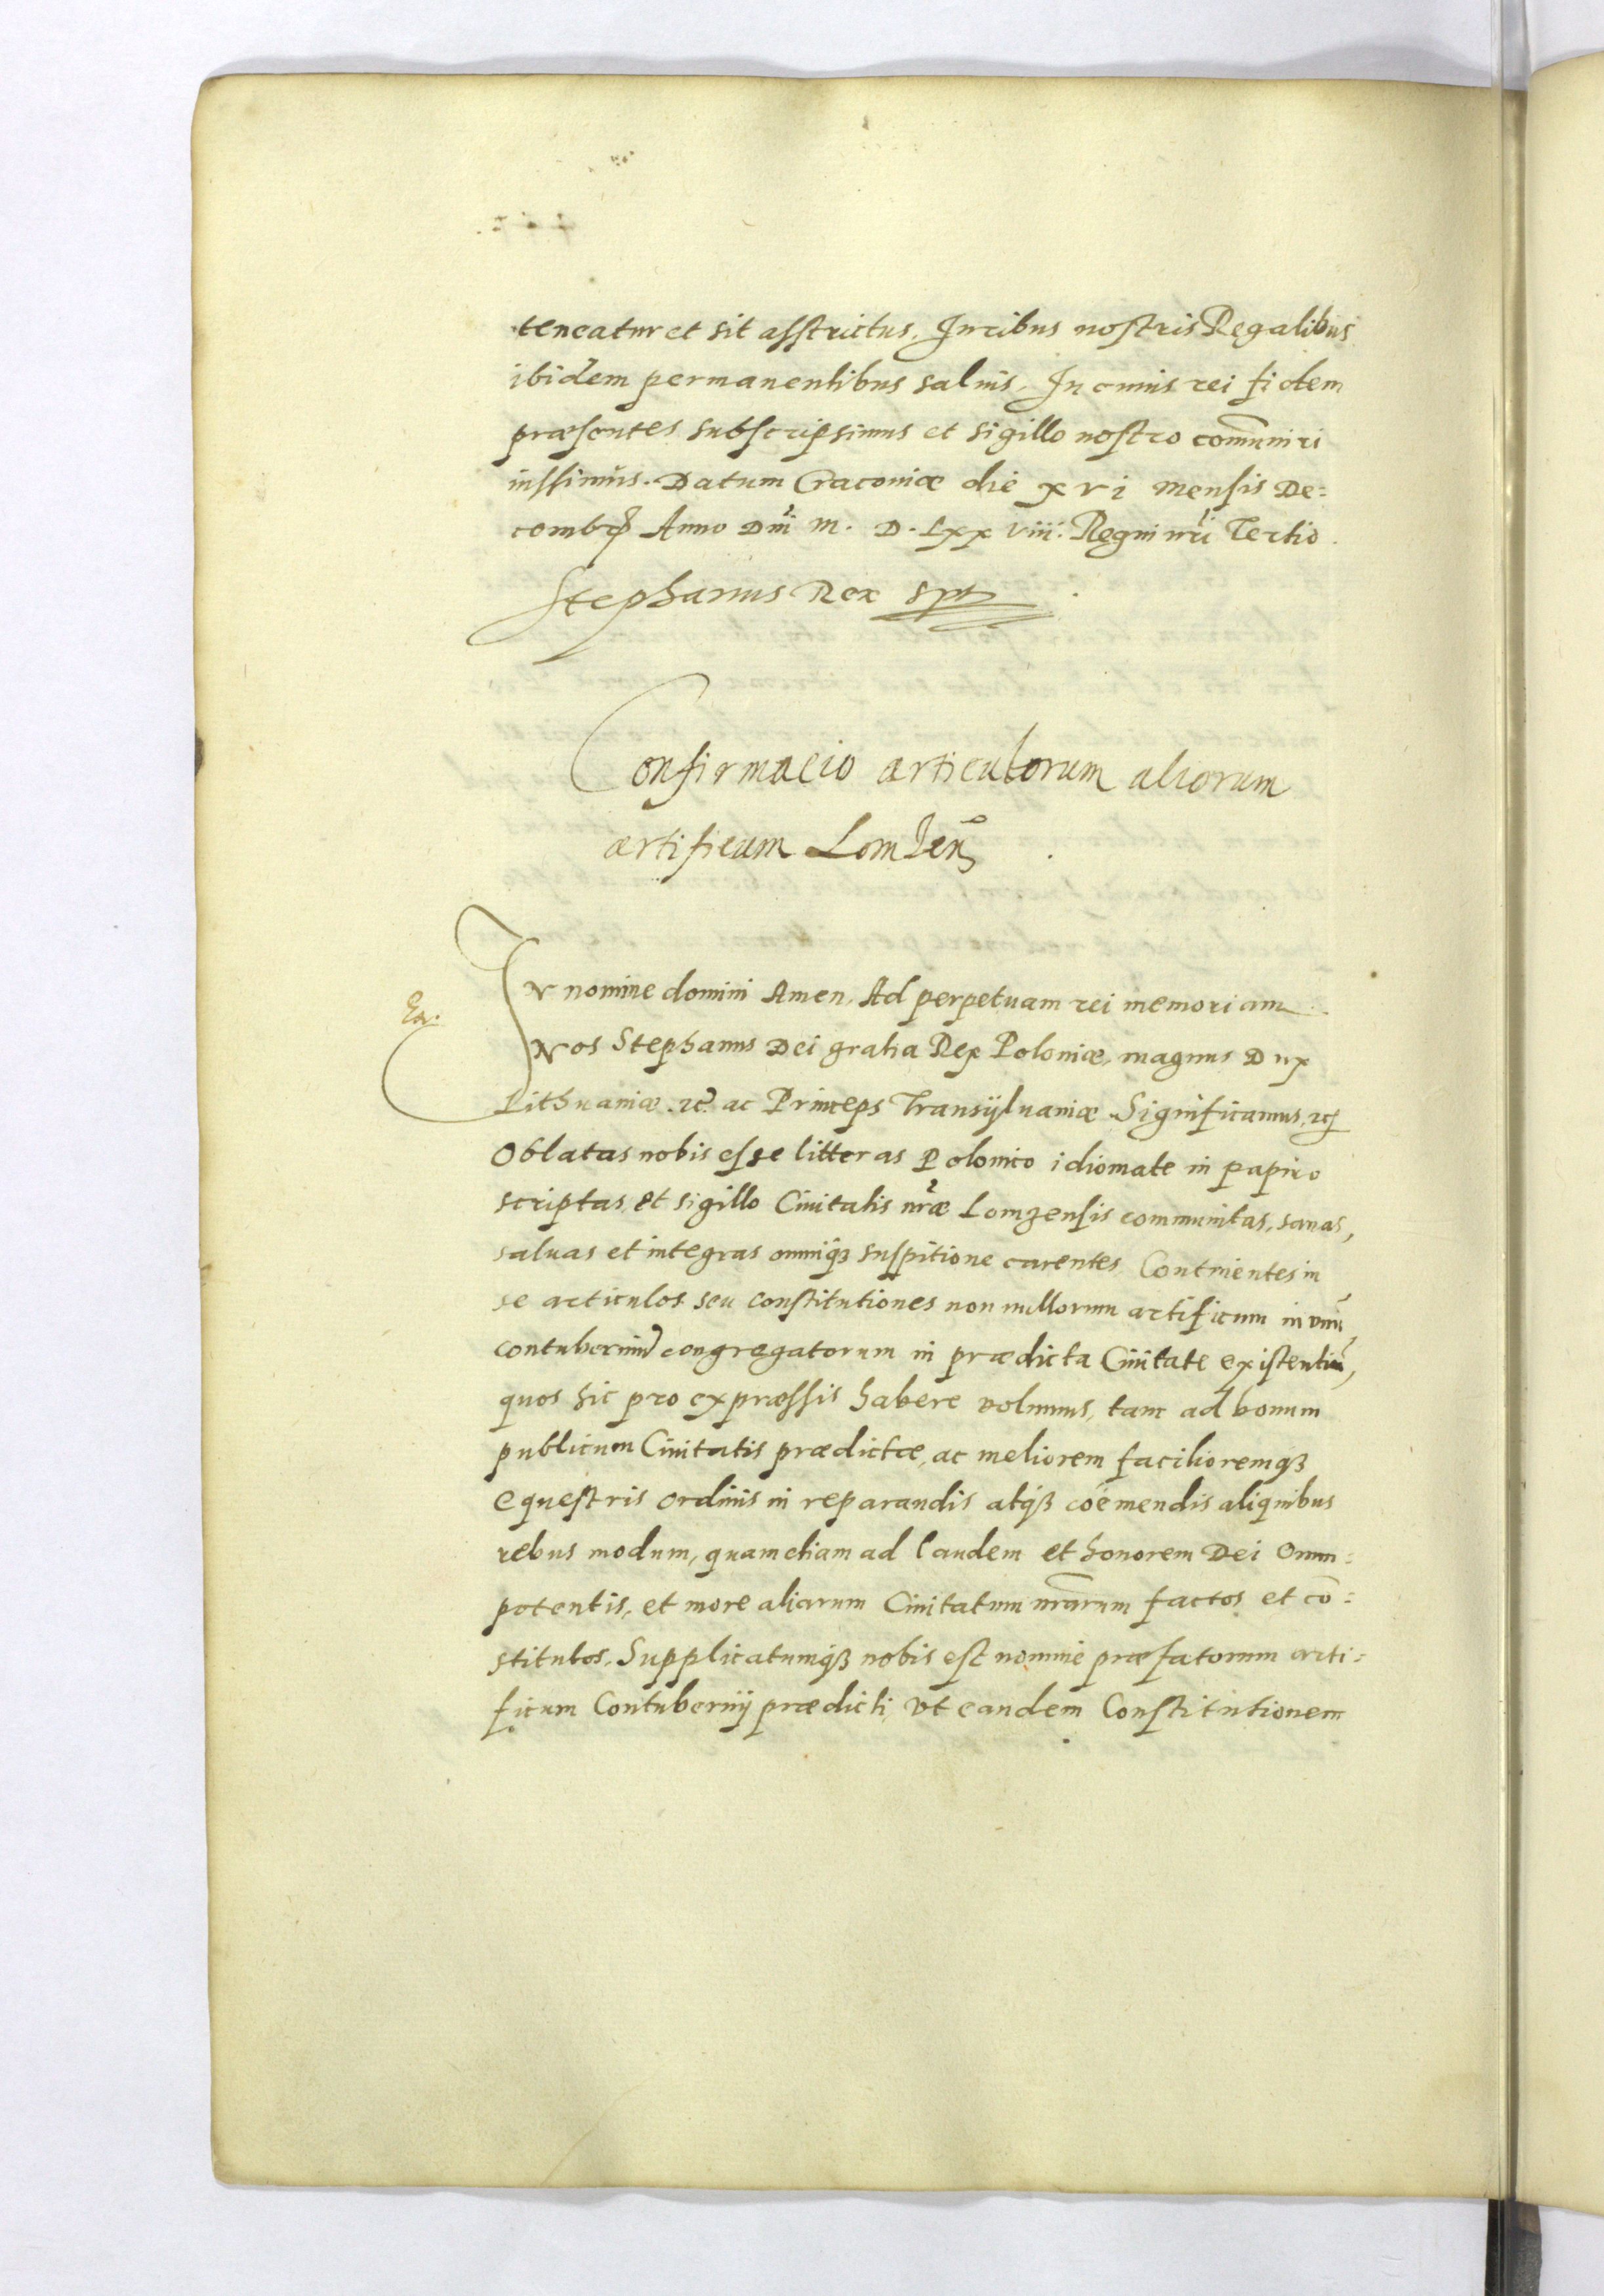 teneatur et sit asstrictus. Iuribus nostris Regalibus
ibidem permanentibus saluis. In cuius rei fidem
præsentes subscripsimus et sigillo nostro com̄uniri
iussimus. Datum Cracouiæ die xvi mensis De=
cembr̃ Anno Dn̄i M. D. Lxx viii. Regni nr̄i Tertio.
Stephanus Rex sp̄t
Confirmacio articulorum aliorum
artificum Lomzen̄
IN nomine domini Amen. Ad perpetuam rei memoriam
Nos Stephanus Dei gratia Rex Poloniæ, magnus Dux
Lithuaniæ. ꝛc̄. ac Princeps Transyluaniæ. Significamus, ꝛc̄
Oblatas nobis esse litteras Polonico idiomate in papiro
scriptas, et sigillo Ciuitatis nr̄æ Lomzensis communitas, sanas,
saluas et integras omniqꝫ suspitione carentes Continentes in
se articulos seu constitutiones non nullorum artificum in vnū
contuberniū congregatorum in prædicta Ciuitate existentiū,
quos hic pro expræssis habere volumus, tam ad bonum
publicum Ciuitatis prædictæ, ac meliorem facilioremqꝫ
equestris ordinis in reparandis atqꝫ coemendis aliquibus
rebus modum, quam etiam ad laudem et honorem Dei Omni=
potentis, et more aliarum Ciuitatum nr̄arum factos et cō=
stitutos. Supplicatumqꝫ nobis est nomine præfatorum arti=
ficum Contubernij prædicti, vt eandem Constitutionem